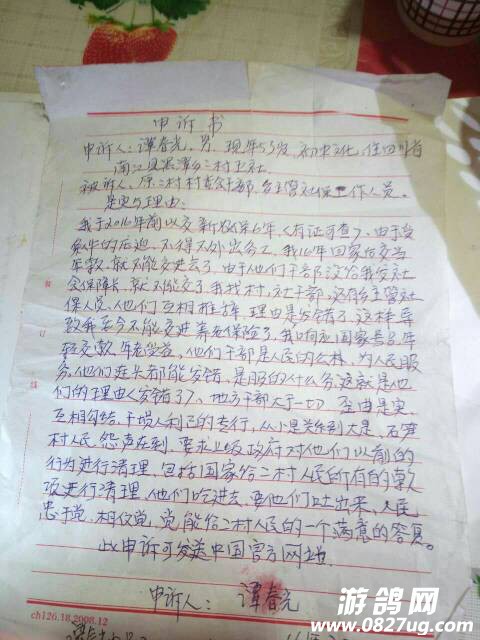 申诉书
申诉人：谭春光，男，现年53岁，初中文化，住四川省
南江县 二村五社
被诉人：原二村村委会干部，乡主管社保工作人员。
事实与理由：
我于2016年前以交新农保6年，（有证可查）。由于受
条件的后迫，不得不外出务工，我16年回家后交当
年款，就不能交进去了，由于他们干部没给我发社
会保障卡，就不能交了，我找村，社干部，还有乡主管社
保人员，他们互相推择，理由是发错了，这样导
致我至今不能交进养老保险了，我响应国家号召，年
轻交款，年老受益，他们干部是人民的公林，为人民服
务，他们连卡都能发错，是服的什么务，这就是他
们的理由（发错了），地方干部大于一切，歪曲是实，
互相勾结，干损人利己的专行，从小是关系到大是，石笋
村人民，怨声在到，要求上级政府对他们以前的
行为进行清理，包括国家给二村人民的所有的款
项进行清理，他们吃进去，要他们吐出来，人民
忠于党，相仅党，党能给二村人民的一个满意的答复。
此申诉可发送中国官方网站。
申诉人：谭春光
ch126.18.2008.12
游鸽网
www.0827ug.com